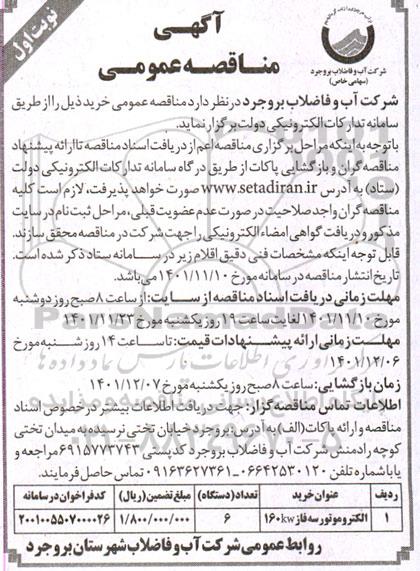 آگهی
مناقصه عمومی
نوبت اول
شرکت آب و فاضلاب بروجرد
(سهامی خاص)
شرکت آب و فاضلاب بروجرد در نظر دارد مناقصه عمومی خرید ذیل را از طریق
سامانه تدارکات الکترونیکی دولت برگزار نماید.
با توجه به اینکه مراحل برگزاری مناقصه اعم از دریافت اسناد مناقصه تا ارائه پیشنهاد
مناقصه گران و بازگشایی پاکات از طریق درگاه سامانه تدارکات الکترونیکی دولت
(ستاد) به آدرس www.setadiran.ir صورت خواهد پذیرفت، لازم است کلیه
مناقصه گران واجد صلاحیت در صورت عدم عضویت قبلی، مراحل ثبت نام در سایت
مذکور و دریافت گواهی امضاء الکترونیکی را جهت شرکت در مناقصه محقق سازند.
قابل توجه اینکه مشخصات فنی دقیق اقلام زیر در سامانه ستاد ذکر شده است.
تاریخ انتشار مناقصه در سامانه مورخ ۱۴۰۱/۱۱/۱۰ می‌باشد.
مهلت زمانی دریافت اسناد مناقصه از سایت: از ساعت ۸ صبح روز دوشنبه
مورخ ۱۴۰۱/۱۱/۱۰ لغایت ساعت ۱۹ روز یکشنبه مورخ ۱۴۰۱/۱۱/۲۳
مهلت زمانی ارائه پیشنهادات قیمت: تا ساعت ۱۴ روز شنبه مورخ
۱۴۰۱/۱۲/۰۶
زمان بازگشایی: ساعت ۸ صبح روز یکشنبه مورخ ۱۴۰۱/۱۲/۰۷
اطلاعات تماس مناقصه گزار: جهت دریافت اطلاعات بیشتر در خصوص اسناد
مناقصه و ارائه پاکات (الف) به آدرس: بروجرد خیابان تختی نرسیده به میدان تختی
کوچه رادمنش شرکت آب و فاضلاب بروجرد کدپستی ۶۹۱۵۷۷۳۷۴۳ مراجعه و
یا با شماره تلفن ۰۶۶۴۲۵۳۰۱۲۰ - ۰۹۱۶۳۶۲۷۳۶۱ تماس حاصل فرمایند.
ردیف عنوان خرید تعداد (دستگاه) مبلغ تضمین (ریال) کد فراخوان در سامانه
۱ الکتروموتور سه فاز ۱۶۰kw ۶ ۱/۸۰۰/۰۰۰/۰۰۰ ۲۰۰۱۰۰۵۵۰۷۰۰۰۰۲۶
روابط عمومی شرکت آب و فاضلاب شهرستان بروجرد